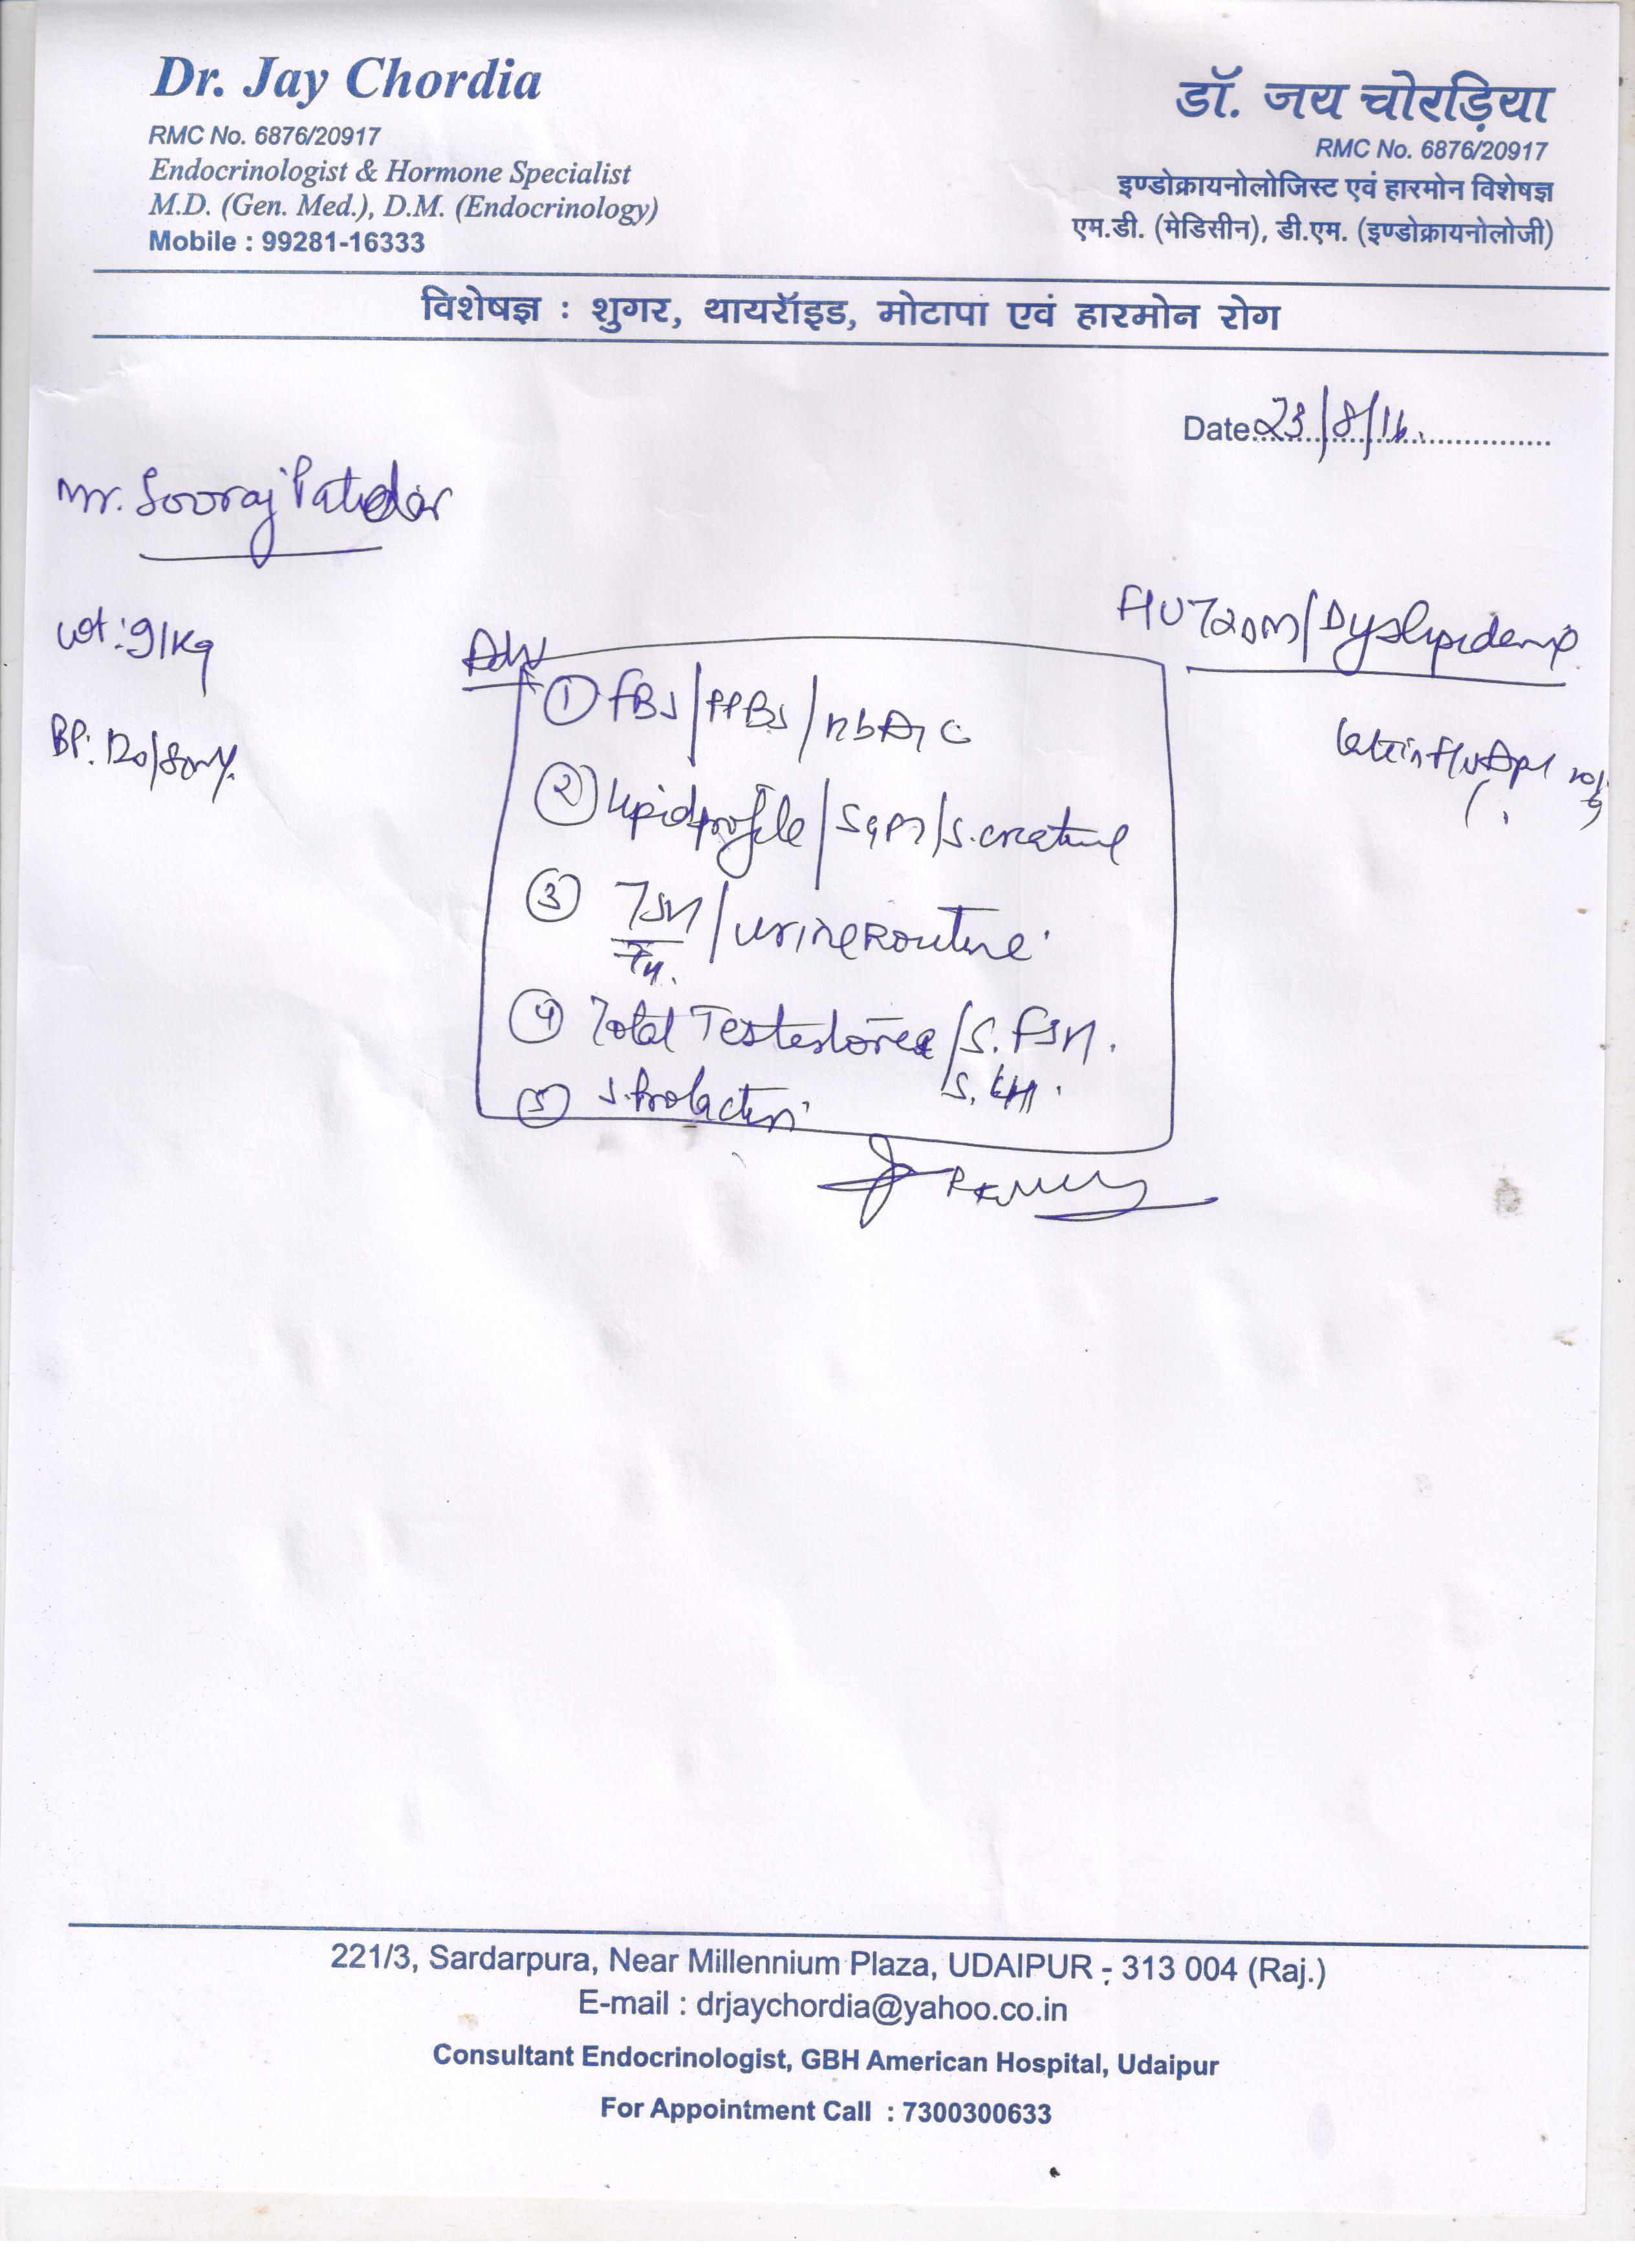 Dr. Jay Chordia
RMC No. 6876/20917
Endocrinologist & Hormone Specialist
M.D. (Gen. Med.), D.M. (Endocrinology)
Mobile : 99281-16333
डॉ. जय चोरड़िया
RMC No. 6876/20917
इण्डोक्रायनोलोजिस्ट एवं हारमोन विशेषज्ञ
एम.डी. (मेडिसीन), डी.एम. (इण्डोक्रायनोलोजी)
विशेषज्ञ : शुगर, थायरॉइड, मोटापा एवं हारमोन रोग
Date 23/8/16
Mr. Sooraj Patidar
F/U T2DM/Dyslipidemia
Wt: 91Kg
BP: 120/80
Adv
① FBS/PPBS/HbA1C
② Lipid profile/SGPT/S. creatine
③ TSH/Urine Routine
T4.
④ Total Testesterone/S. FSH.
S. LH.
⑤ S. Prolactin
221/3, Sardarpura, Near Millennium Plaza, UDAIPUR - 313 004 (Raj.)
E-mail : drjaychordia@yahoo.co.in
Consultant Endocrinologist, GBH American Hospital, Udaipur
For Appointment Call : 7300300633